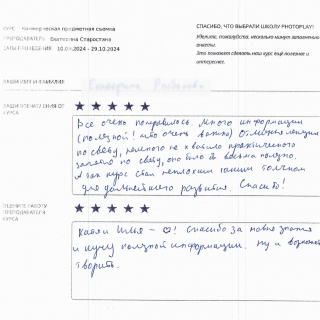 КУРС Коммерческая предметная съемка
ПРЕПОДАВАТЕЛЬ Екатерина Старостина
ДАТЫ ПРОВЕДЕНИЯ 10.09.2024 - 29.10.2024
СПАСИБО, ЧТО ВЫБРАЛИ ШКОЛУ PHOTOPLAY!
Уделите, пожалуйста, несколько минут заполнению
анкеты.
Это поможет сделать наш курс ещё полезнее и
интереснее.
ВАШИ ИМЯ И ФАМИЛИЯ
ВАШИ ВПЕЧАТЛЕНИЯ ОТ
КУРСА
Все очень понравилось. Много информации
(полезной! что очень важно) Отличные лекции
по свету, немного не хватило практического
занятия по свету, оно было бы весьма полезно.
А так курс стал неплохим таким толчком
для дальнейшего развития. Спасибо!
ОЦЕНИТЕ РАБОТУ
ПРЕПОДАВАТЕЛЯ
КУРСА
Катя и Илья – ♡! Спасибо за новые знания
и кучу полезной информации. Ну и
творить.